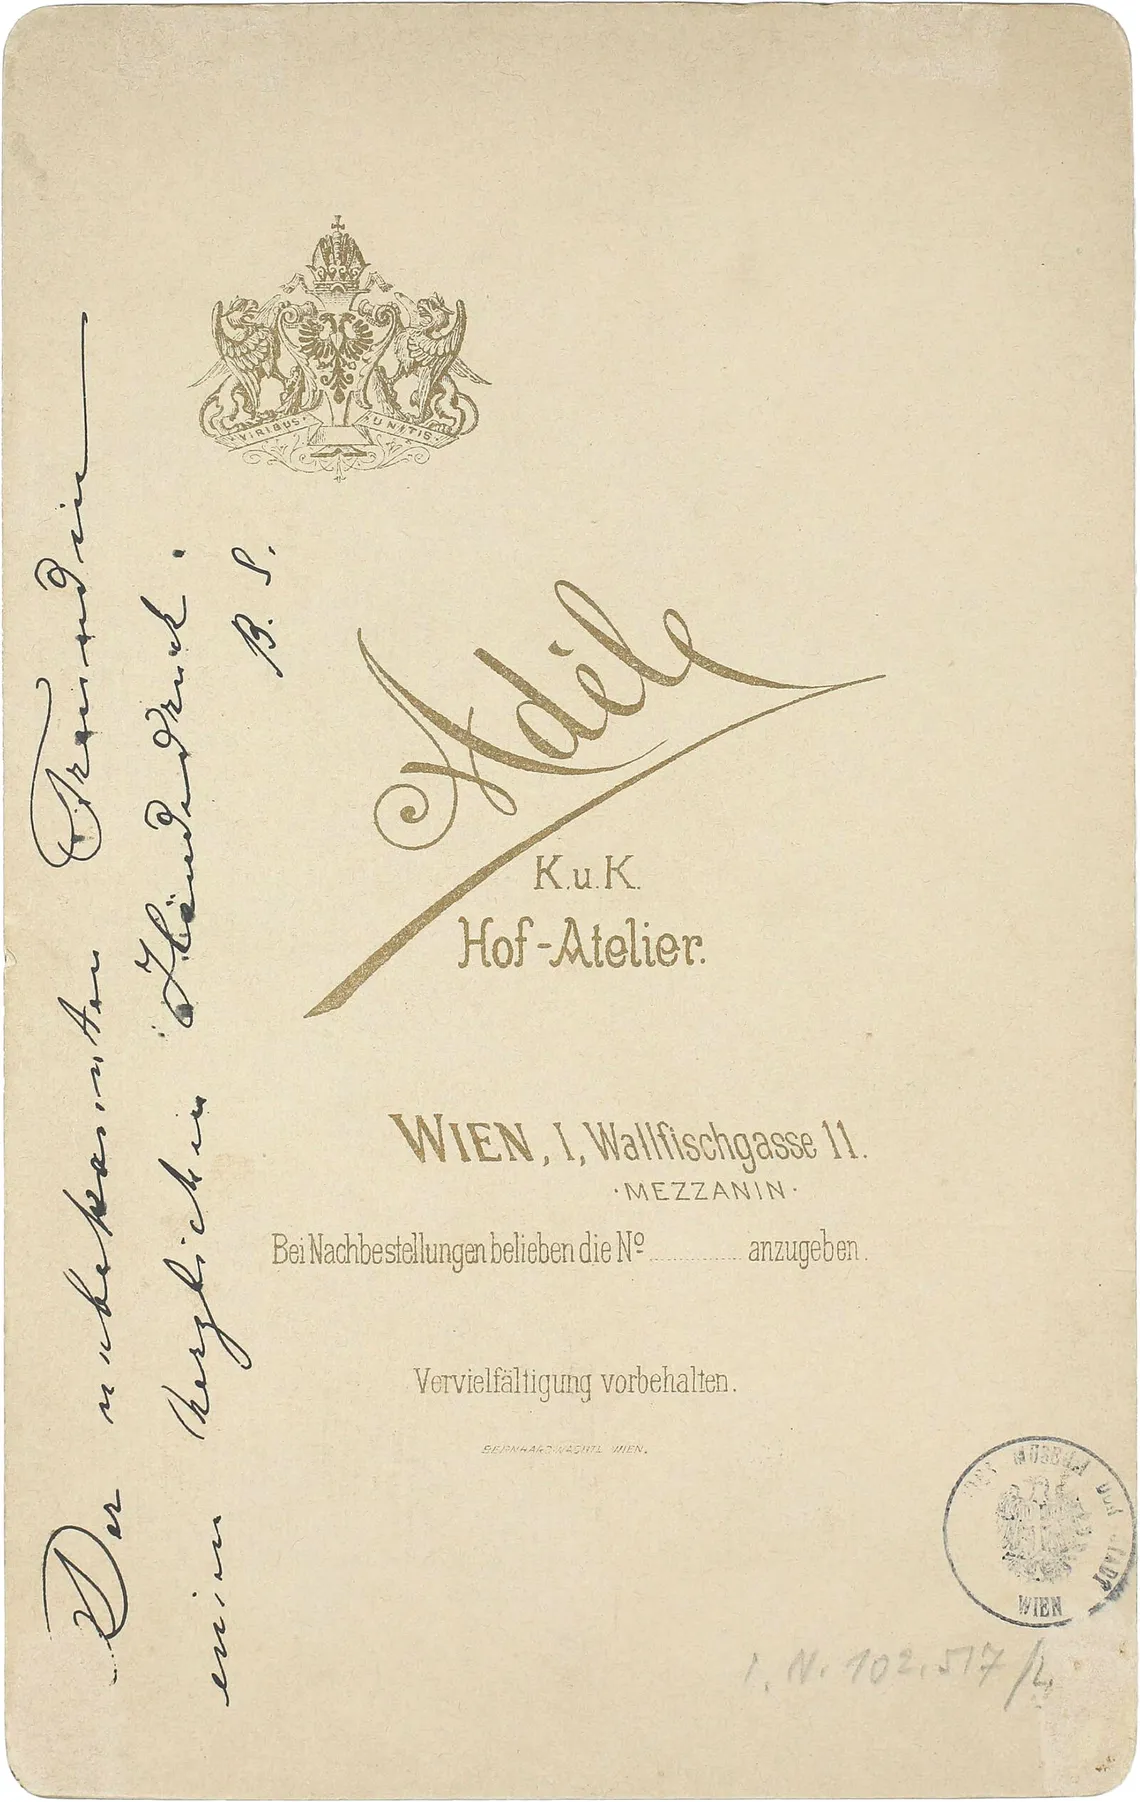 VIRIBUS UNITIS
Der unbekannten Freundin
einen herzlichen Händedruck.
B. S.
Adèle
K.u.K.
Hof-Atelier.
WIEN, I, Wallfischgasse 11.
·MEZZANIN·
Bei Nachbestellungen belieben die Nº ............ anzugeben.
Vervielfältigung vorbehalten.
BERNHARD WACHTL WIEN.
MUSEUM DER STADT
WIEN
I. N. 102.517/4